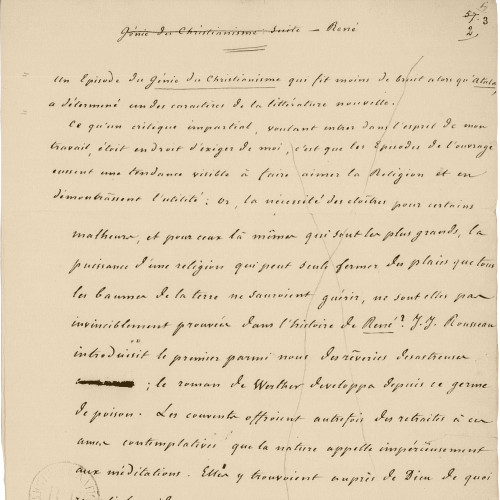 Génie du Christianisme : suite — René
57. 3
2
Un Episode du Génie du Christianisme qui fit moins de bruit alors qu'Atala,
a déterminé un des caractères de la littérature nouvelle.
Ce qu'un critique impartial, voulant entrer dans l'esprit de mon
travail, étoit en droit d'exiger de moi, c'est que les Episodes de l'ouvrage
eussent une tendance visible à faire aimer la Religion et en
démontrassent l'utilité : Or, la nécessité des cloîtres pour certains
malheurs, et pour ceux là même qui sont les plus grands, la
puissance d'une religion qui peut seule fermer des plaies que tous
les baumes de la terre ne sauroient guérir, ne sont elles pas
invinciblement prouvées dans l'histoire de René? J. J. Rousseau
introduisit le premier parmi nous des rêveries desastreuses
; le roman de Werther developpa depuis ce germe
de poison. Les couvents offroient autrefois des retraites à ces
ames contemplatives que la nature appelle impérieusement
aux méditations. Elles y trouvoient auprès de Dieu de quoi